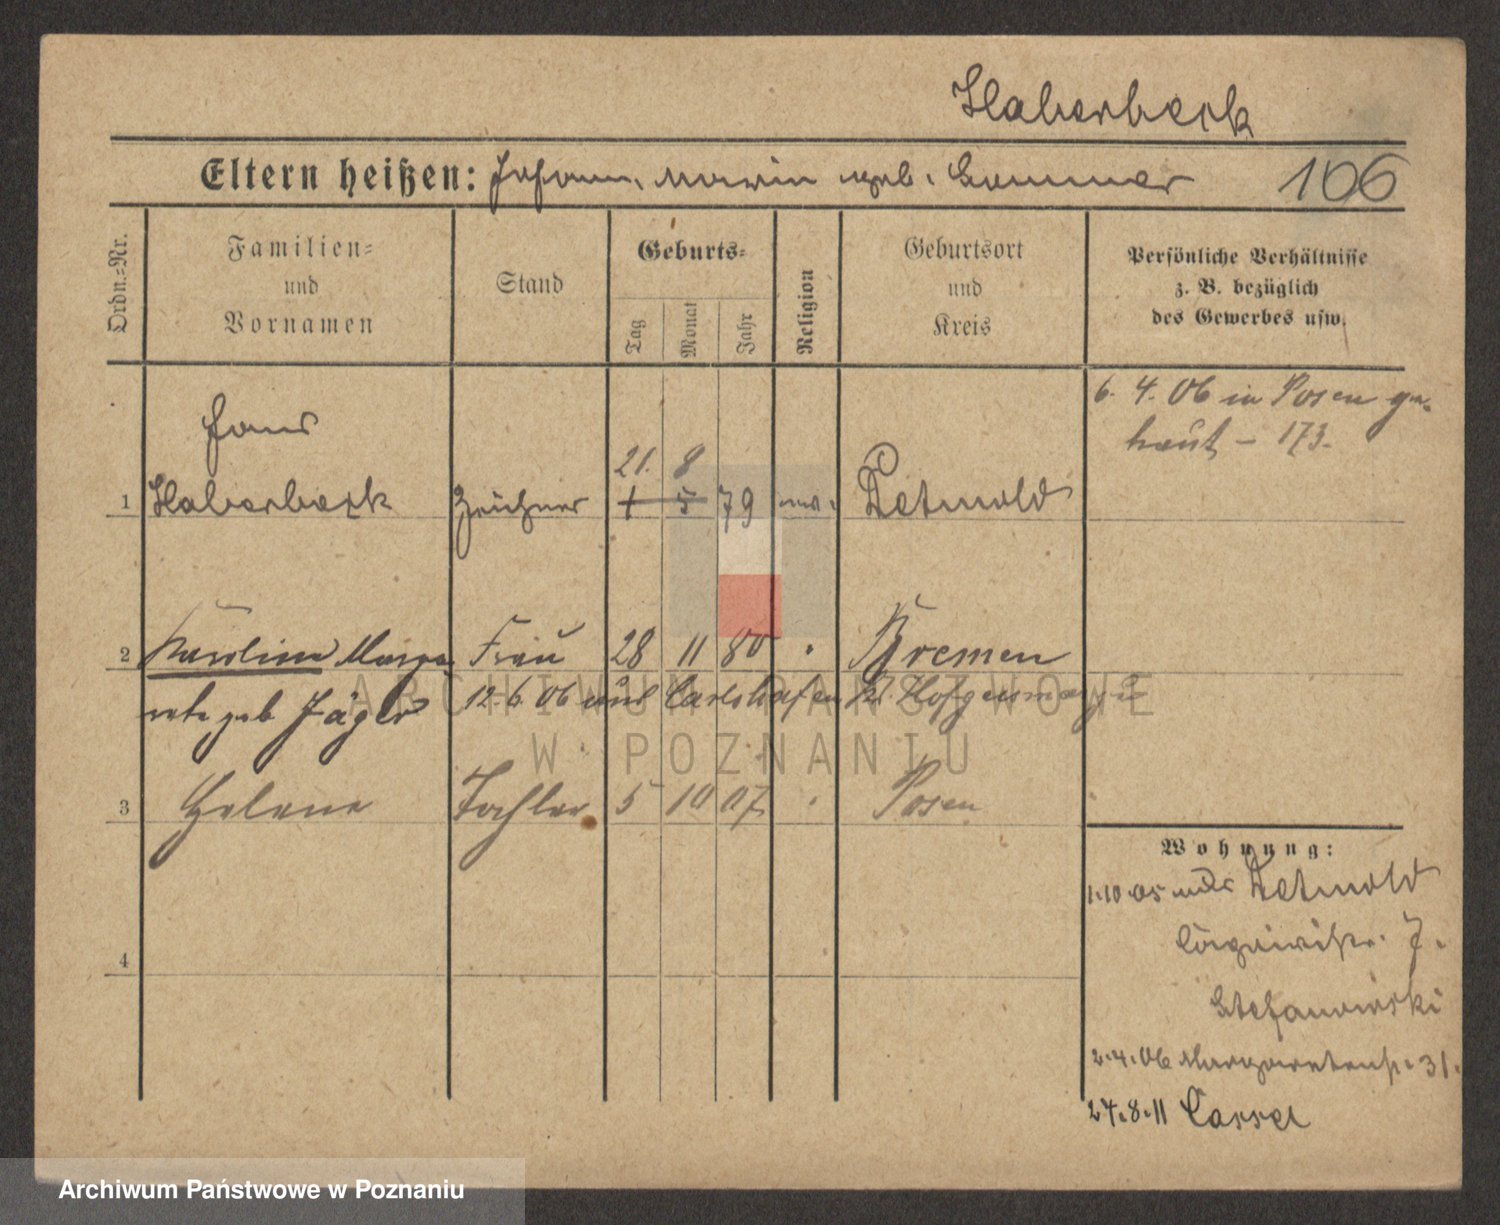 Haberbeck
Eltern heißen: Johann, Maria geb. Sommer 106
Ordn.=Nr.
Familien=
und
Vornamen
Stand
Geburts=
Tag
Monat
Jahr
Religion
Geburtsort
und
Kreis
Persönliche Verhältnisse
z. B. bezüglich
des Gewerbes usw.
6. 4. 06 in Posen ge-
traut - 173.
Hans
21. 8
1 Haberbeck Zeichner 1 5 79 Detmold
2 Karoline Marga Frau 28 11 80 Bremen
rete geb Jäger 12.6.06 aus Carlshafen Kr. Hofgeismar
3 Helene Tochter 5 10 07 Posen
4
Wohnung:
1.10.05 Detmold
7.
Stefanowski
2.4.06 Margaretenstr. 31.
24.8.11 Cassel
ARCHIWUM PAŃSTWOWE
W POZNANIU
Archiwum Państwowe w Poznaniu